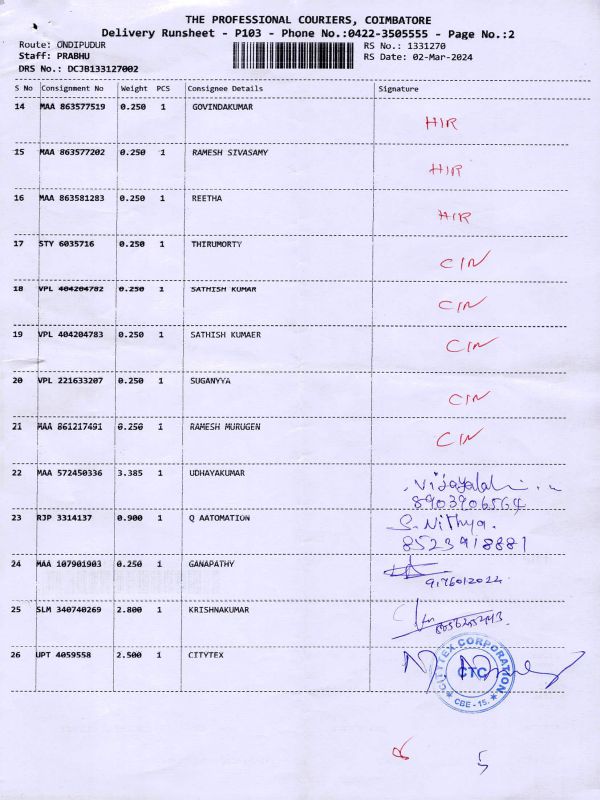 THE PROFESSIONAL COURIERS, COIMBATORE
Delivery Runsheet - P103 - Phone No.:0422-3505555 - Page No.:2
Route: ONDIPUDUR RS No.: 1331270
Staff: PRABHU RS Date: 02-Mar-2024
DRS No.: DCJB133127002
S No Consignment No Weight PCS Consignee Details Signature
14 MAA 863577519 0.250 1 GOVINDAKUMAR
HIR
15 MAA 863577202 0.250 1 RAMESH SIVASAMY
HIR
16 MAA 863581283 0.250 1 REETHA
HIR
17 STY 6035716 0.250 1 THIRUMORTY
CIN
18 VPL 404204782 0.250 1 SATHISH KUMAR
CIN
19 VPL 404204783 0.250 1 SATHISH KUMAER
CIN
20 VPL 221633207 0.250 1 SUGANYYA
CIN
21 MAA 861217491 0.250 1 RAMESH MURUGEN
CIN
22 MAA 572450336 3.385 1 UDHAYAKUMAR
8903906564
23 RJP 3314137 0.900 1 Q AATOMATION
S. Nithya.
8523918881
24 MAA 107901903 0.250 1 GANAPATHY
25 SLM 340740269 2.800 1 KRISHNAKUMAR
26 UPT 4059558 2.500 1 CITYTEX
CITYTEX CORPORATION
CTC
CBE - 15.
5